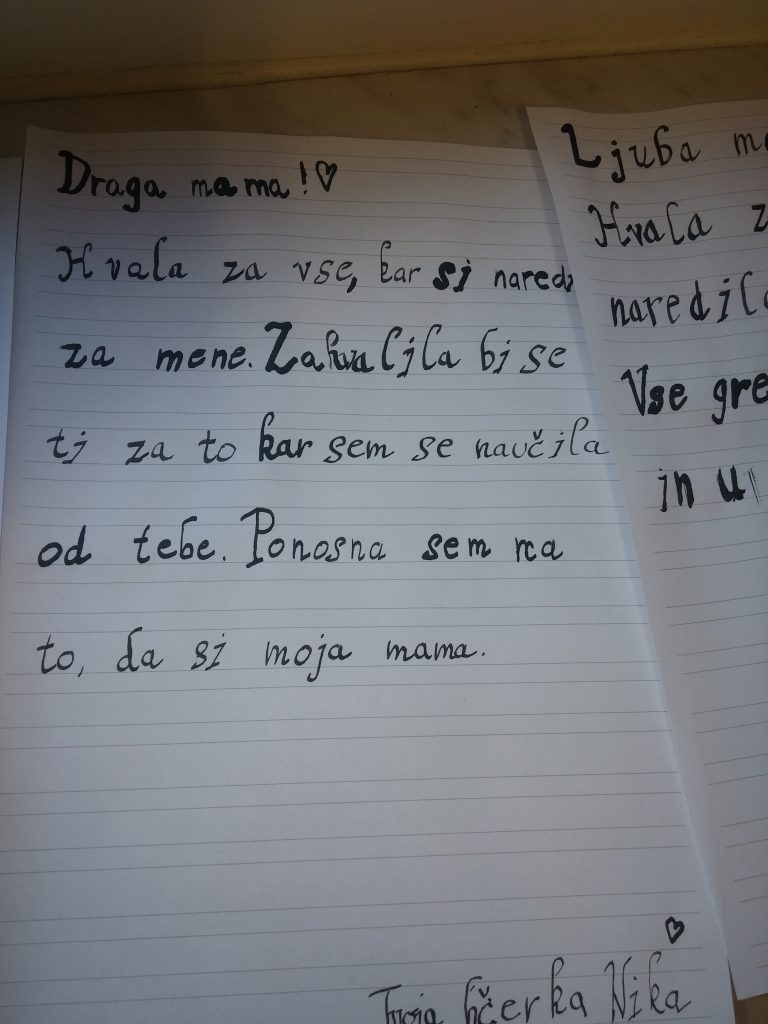 Draga mama!♡
Hvala za vse, kar si naredi
za mene. Zahvalila bi se
ti za to kar sem se naučila
od tebe. Ponosna sem na
to, da si moja mama.
♡
Tvoja hčerka Nika
Ljuba
Hvala
naredila
Vse
in